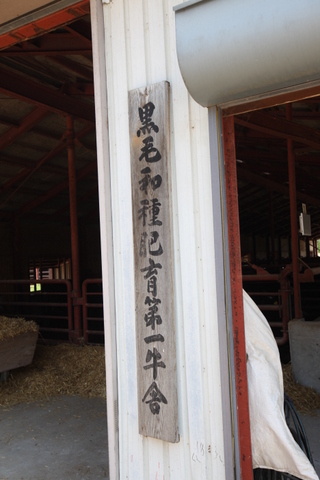 黒毛和種肥育第一牛舎